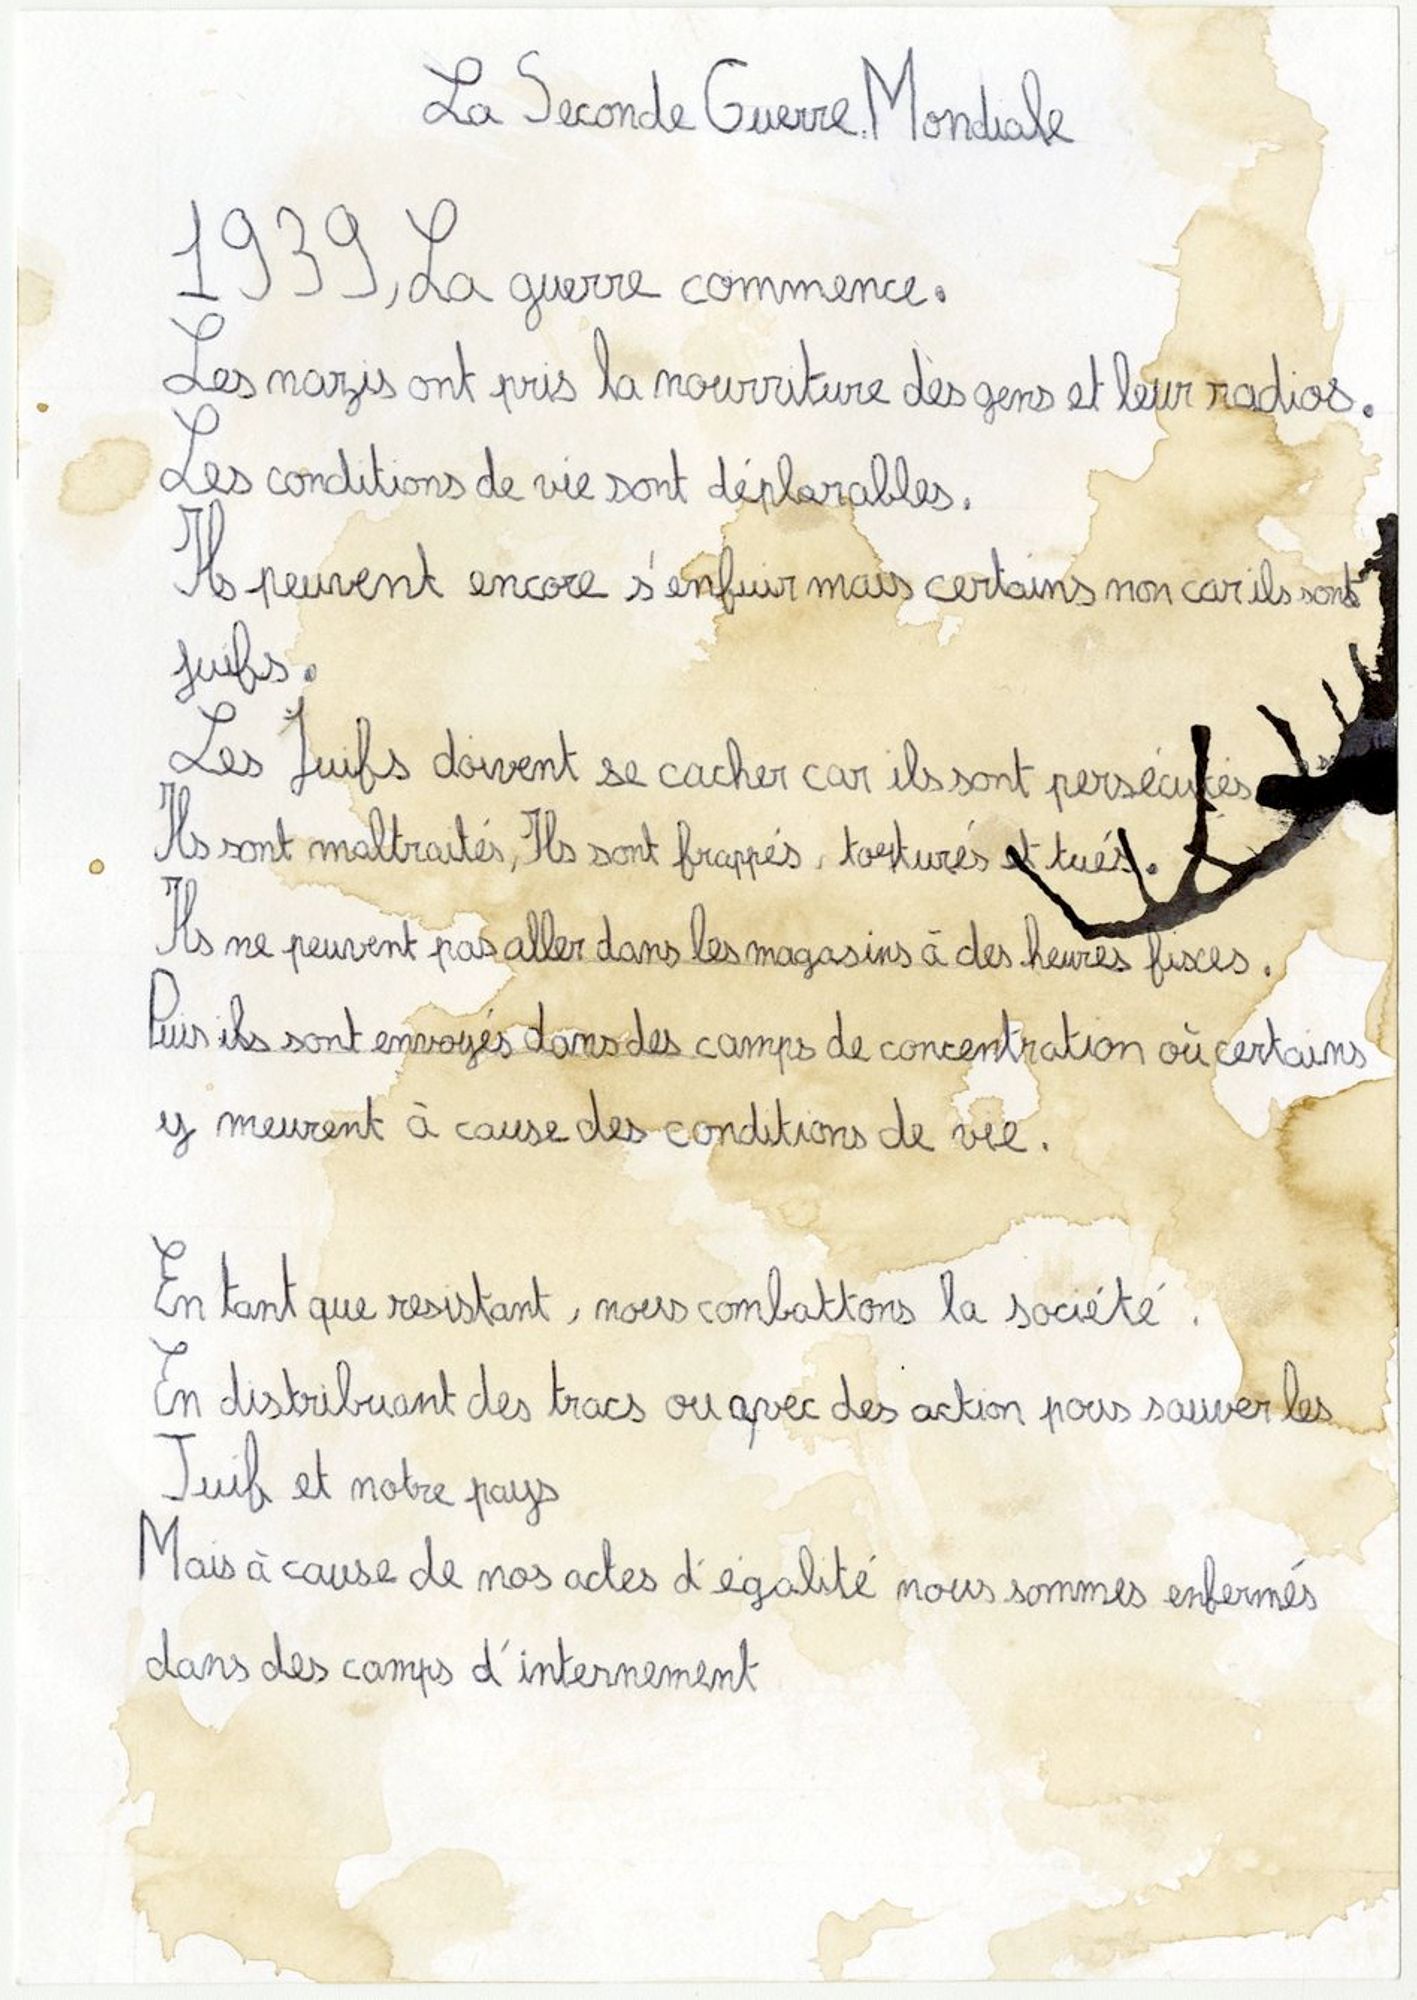 La Seconde Guerre Mondiale
1939, La guerre commence.
Les nazis ont pris la nourriture des gens et leur radios.
Les conditions de vie sont déplorables.
Ils peuvent encore s'enfuir mais certains non car ils sont
juifs.
Les Juifs doivent se cacher car ils sont persécutés
Ils sont maltraités, Ils sont frappés, torturés et tués.
Ils ne peuvent pas aller dans les magasins à des heures fixes.
Puis ils sont envoyés dans des camps de concentration où certains
y meurent à cause des conditions de vie.
En tant que resistant, nous combattons la société.
En distribuant des tracs ou avec des action pous sauver les
Juif et notre pays
Mais à cause de nos actes d'égalité nous sommes enfermés
dans des camps d'internement